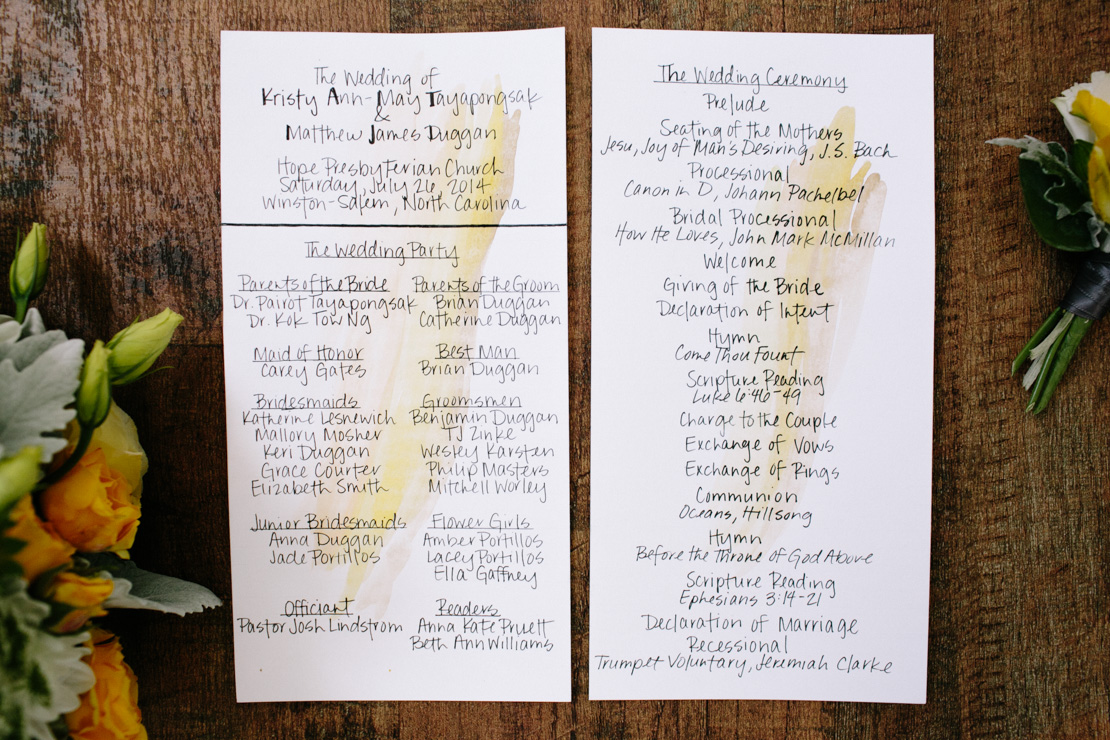 The Wedding of
Kristy Ann-May Tayapongsak
&
Matthew James Duggan
Hope Presbyterian Church
Saturday, July 26, 2014
Winston-Salem, North Carolina
The Wedding Party
Parents of the Bride
Dr. Pairot Tayapongsak
Dr. Kok Tow Ng
Parents of the Groom
Brian Duggan
Catherine Duggan
Maid of Honor
Carey Gates
Best Man
Brian Duggan
Bridesmaids
Katherine Lesnewich
Mallory Mosher
Keri Duggan
Grace Courter
Elizabeth Smith
Groomsmen
Benjamin Duggan
TJ Zinke
Wesley Karsten
Philip Masters
Mitchell Worley
Junior Bridesmaids
Anna Duggan
Jade Portillos
Flower Girls
Amber Portillos
Lacey Portillos
Ella Gaffney
Officiant
Pastor Josh Lindstrom
Readers
Anna Kate Pruett
Beth Ann Williams
The Wedding Ceremony
Prelude
Seating of the Mothers
Jesu, Joy of Man's Desiring, J.S. Bach
Processional
Canon in D, Johann Pachelbel
Bridal Processional
How He Loves, John Mark McMillan
Welcome
Giving of the Bride
Declaration of Intent
Hymn
Come Thou Fount
Scripture Reading
Luke 6:46-49
Charge to the Couple
Exchange of Vows
Exchange of Rings
Communion
Oceans, Hillsong
Hymn
Before the Throne of God Above
Scripture Reading
Ephesians 3:14-21
Declaration of Marriage
Recessional
Trumpet Voluntary, Jeremiah Clarke